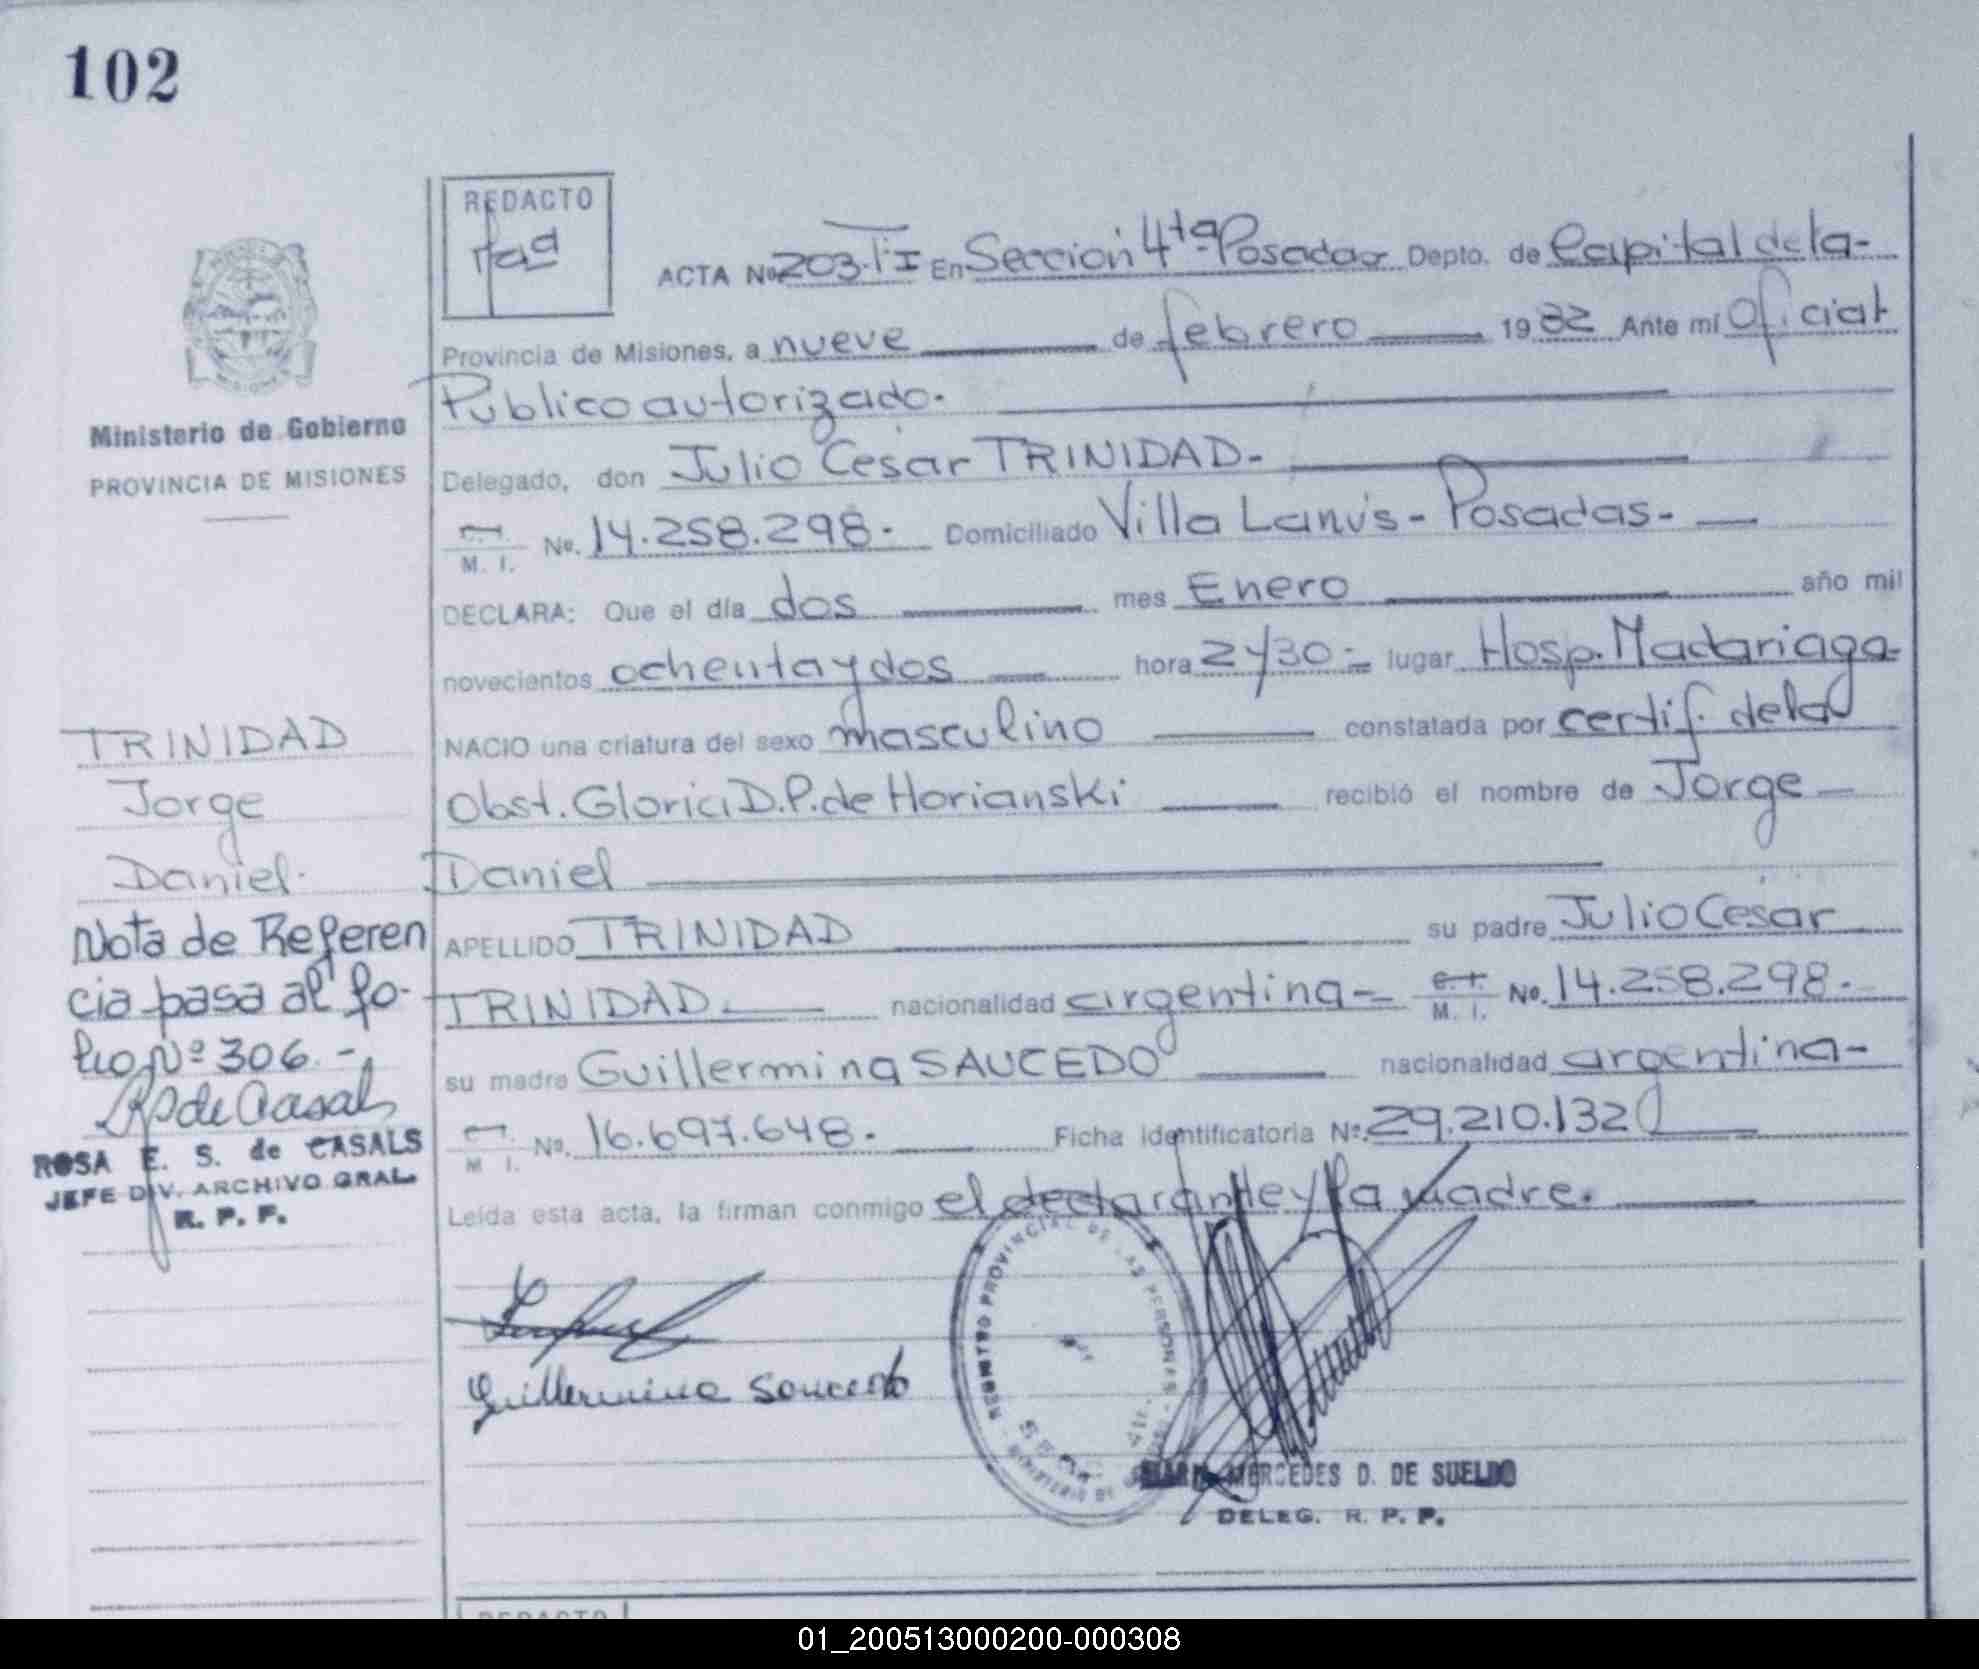 102
REDACTO
ACTA Nº 203.TI En Sección 4ta Posadas Depto. de Capital de la-
Provincia de Misiones, a nueve de febrero 1982 Ante mí Oficial
Publico autorizado.
Delegado, don Julio César TRINIDAD.-
M. I. No. 14.258.298.- Domiciliado Villa Lanús - Posadas.-
DECLARA: Que el día dos mes Enero año mil
novecientos ochenta y dos hora 2y30.- lugar Hosp. Madariaga
NACIO una criatura del sexo masculino constatada por certif. de la
Obst. Gloria D.P. de Horianski recibió el nombre de Jorge
Daniel
APELLIDO TRINIDAD su padre Julio César
TRINIDAD.- nacionalidad argentina- C.I. M. I. No. 14.258.298.-
su madre Guillermina SAUCEDO nacionalidad argentina-
M I. No. 16.697.648.- Ficha identificatoria Nº. 29.210.132
Leída esta acta, la firman conmigo el declarante y la madre.
Guillermina Saucedo
REGISTRO PROVINCIAL DE LAS PERSONAS
MERCEDES D. DE SUELDO
DELEG. R. P. P.
Ministerio de Gobierno
PROVINCIA DE MISIONES
TRINIDAD
Jorge
Daniel.
Nota de Referen
cia pasa al fo-
lio Nº 306.-
de Casals
ROSA E. S. de CASALS
JEFE DIV. ARCHIVO GRAL.
R. P. P.
REDACTO
01_200513000200-000308